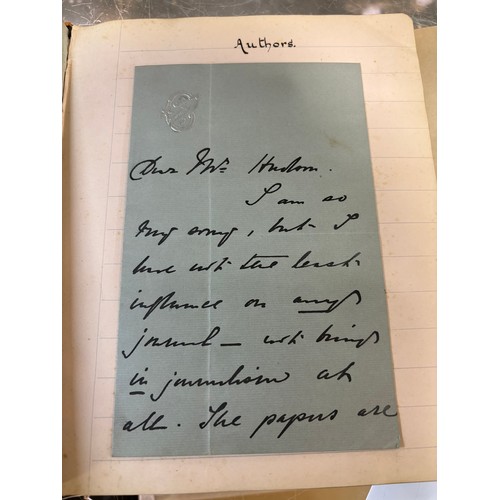 Authors.
Dear Mrs Hudson.
I am so
very sorry, but I
have not the least
influence on any
journal – not being
in journalism at
all. The papers are